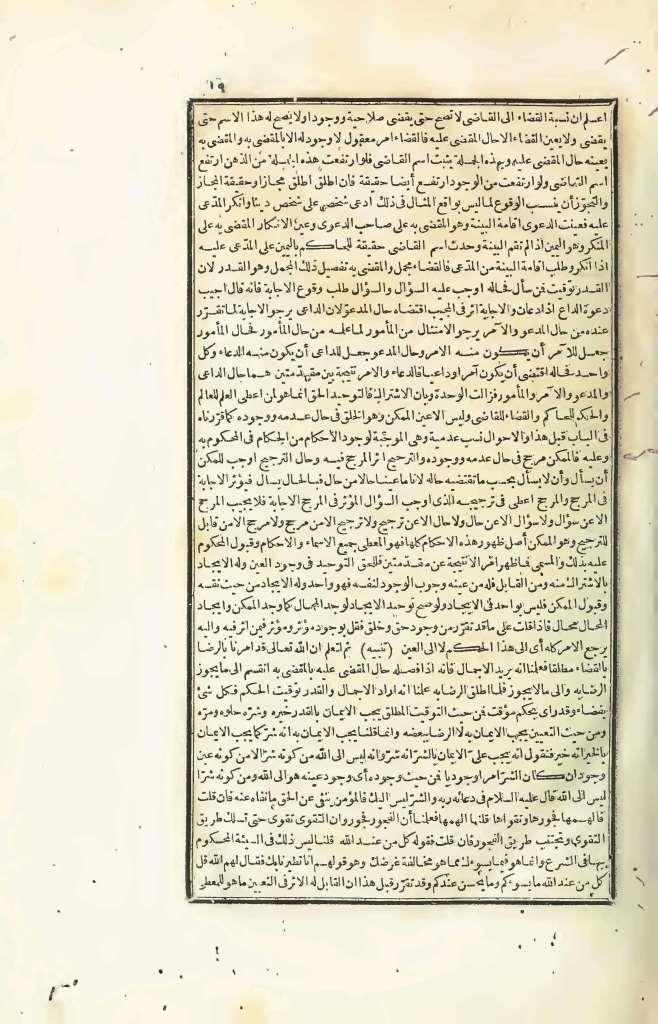 ١٩
اعلم ان نسبة القضاء الى القاضى لا تصح حتى يقضى صلاحية ووجودا ولا يصح له هذا الاسم حتى
يقضى ولا يعين القضاء الا حال المقضى عليه فالقضاء امر معقول لا وجود له الا بالمقضى به والمقضى به
يعينه حال المقضى عليه وبهذه الجملة يثبت اسم القاضى فلو ارتفعت هذه الجملة من الذهن ارتفع
اسم القاضى ولو ارتفعت من الوجود ارتفع أيضا حقيقة فان اطلق اطلق مجازا وحقيقة المجاز
والتجوّز أن ينسب الوقوع لما ليس بواقع المثال فى ذلك ادعى شخص على شخص دينا وانكر المدعى
عليه فعينت الدعوى اقامة البينة وهو المقضى به على صاحب الدعوى وعين الانكار المقضى به على
المنكر وهو اليمين اذا لم تقم البينة وحدث اسم القاضى حقيقة للحاكم باليمين على المدّعى عليه
اذا انكر وطلب اقامة البينة من المدّعى فالقضاء مجمل والمقضى به تفصيل ذلك المجمل وهو القدر لان
القدر توقيت فمن سأل فحاله اوجب عليه السؤال والسؤال طلب وقوع الاجابة فانه قال اجيب
دعوة الداع اذا دعان والاجابة اثر فى المجيب اقتضاه حال المدعوّ لان الداعى يرجو الاجابة لما تقرّر
عنده من حال المدعو والآمر يرجو الامتثال من المأمور لما علمه من حال المأمور فحال المأمور
جعل للآمر أن يكون منه الامر وحال المدعو جعل للداعى أن يكون منه الدعاء وكل
واحد فحاله اقتضى أن يكون آمرا وداعيا فالدعاء والامر نتيجة بين مقدّمتين هما حال الداعى
والمدعو والآمر والمأمور فزالت الوحدة وبان الاشتراك فالتوحيد الحق انما هو لمن اعطى العلم للعالم
والحكم للحاكم والقضاء للقاضى وليس الا عين الممكن وهو الخلق فى حال عدمه ووجوده كما قرّرناه
فى الباب قبل هذا والاحوال نسب عدمية وهى الموجبة لوجود الأحكام من الحكام فى المحكوم به
وعليه فالممكن مرجح فى حال عدمه ووجوده والترجيح اثر المرجح فيه وحال الترجيح اوجب للممكن
أن يسأل وأن لا يسأل بحسب ما تقتضيه حاله لانا ما عينا حالا من حال فبالحال يسأل فيؤثر الاجابة
فى المرجح والمرجح اعطى فى ترجيحه الذى اوجب السؤال المؤثر فى المرجح الاجابة فلا يجيب المرجح
الا عن سؤال ولا سؤال الا عن حال ولا حال الا عن ترجيح ولا ترجيح الا من مرجح ولا مرجح الا من قابل
للترجيح وهو الممكن أصل ظهور هذه الاحكام كلها فهو المعطى جميع الاسماء والاحكام وقبول المحكوم
عليه بذلك والمسمى فما ظهر أمر الا نتيجة عن مقدّمتين فللحق التوحيد فى وجود العين وله الايجاد
بالاشتراك منه ومن القابل فله من عينه وجوب الوجود لنفسه فهو واحد وله الايجاد من حيث نفسه
وقبول الممكن فليس بواحد فى الايجاد ولو صح توحيد الايجاد لوجد المحال كما وجد الممكن وايجاد
المحال محال فاذا قلت على ما قد تقرّر من وجود حق وخلق فقل بوجود مؤثر ومؤثر فيمن اثر فيه واليه
يرجع الامر كله أى الى هذا الحكم لا الى العين (تنبيه) ثم لتعلم ان الله تعالى قد امرنا بالرضا
بالقضاء مطلقا فعلمنا انه يريد الاجمال فانه اذا فصله حال المقضى عليه بالمقضى به انقسم الى ما يجوز
الرضا به والى ما لا يجوز فلما اطلق الرضا به علمنا انه اراد الاجمال والقدر توقيت الحكم فكل شئ
بقضاء وقدر اى بحكم مؤقت فمن حيث التوقيت المطلق يجب الايمان بالقدر خيره وشرّه حلوه ومرّه
ومن حيث التعيين يجب الايمان به لا الرضا ببعضه وانما قلنا يجب الايمان به انه شرّ كما يجب الايمان
بالخير انه خير فنقول انه يجب علىّ الايمان بالشرّ انه شرّ وانه ليس الى الله من كونه شرّا لا من كونه عين
وجود ان كان الشرّ امرا وجوديا فمن حيث وجوده أى وجود عينه هو الى الله ومن كونه شرّا
ليس الى الله قال عليه السلام فى دعائه ربه والشرّ ليس اليك فالمؤمن ينفى عن الحق ما نفاه عنه فان قلت
فالهمها فجورها وتقواها قلنا الهمها فعلمنا أن الفجور فجور وان التقوى تقوى حتى تسلك طريق
التقوى وتجتنب طريق الفجور فان قلت فقوله كل من عند الله قلنا ليس ذلك فى السيئة المحكوم
بها فى الشرع وانما هو فيما يسوءك مما هو مخالفة غرضك وهو قولهم انا تطيرنا بك فقال لهم الله قل
كل من عند الله ما يسوءكم وما يحسن عندكم وقد تقرّر قبل هذا ان القابل له الاثر فى التعيين ما هو للمعطى